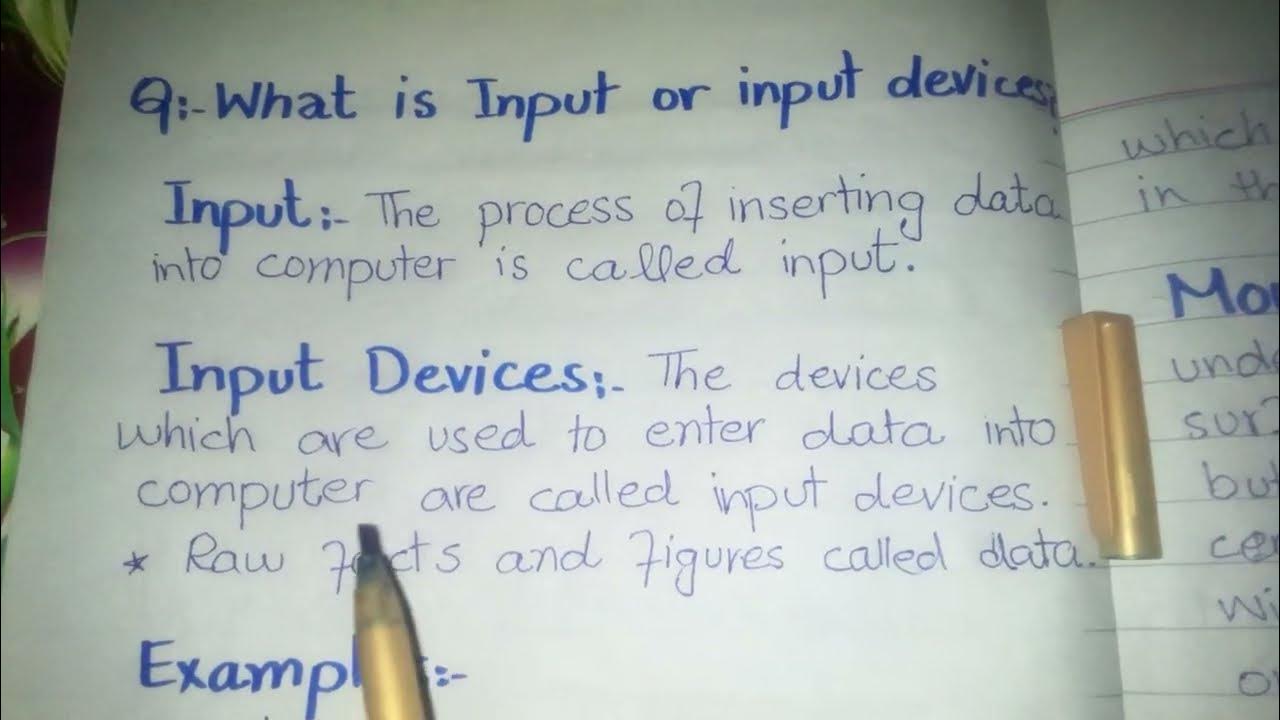 Q:- What is Input or input devices?
Input:- The process of inserting data
into computer is called input.
Input Devices:- The devices
which are used to enter data into
computer are called input devices.
* Raw facts and figures called data.
Example:-
which
in